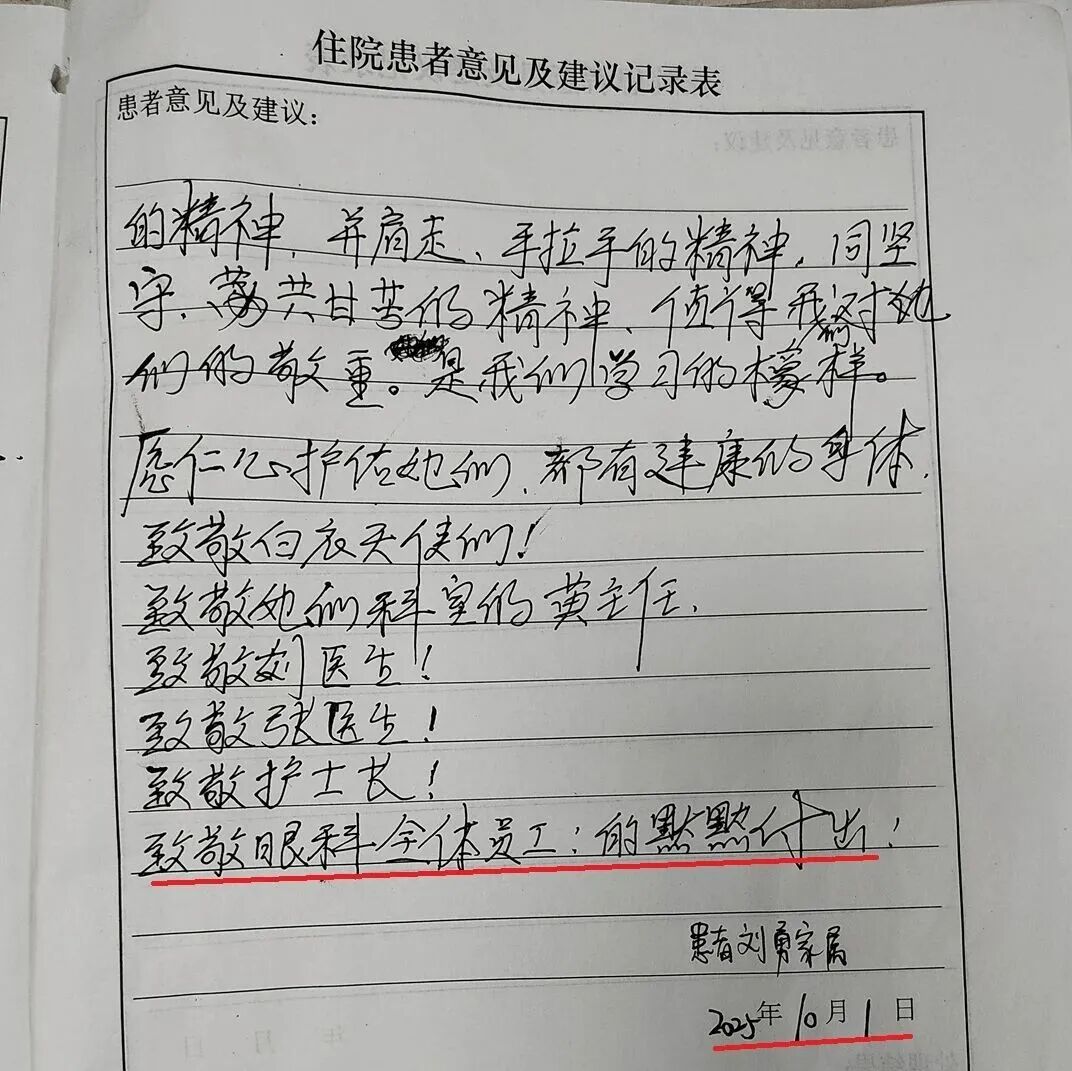 住院患者意见及建议记录表
患者意见及建议：
的精神、并肩走、手拉手的精神，同坚
守、共甘苦的精神、值得我们对她
们的敬重。是我们学习的榜样。
愿仁心护佑她们，都有健康的身体，
致敬白衣天使们！
致敬她们科室的黄主任，
致敬刘医生！
致敬张医生！
致敬护士长！
致敬眼科全体员工：的默默付出！
患者刘勇家属
2025年10月1日